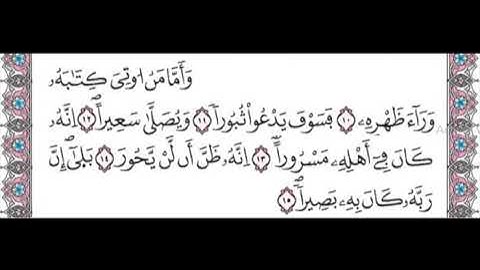 وَأَمَّا مَنْ اُوتِىَ كِتَٰبَهُۥ
وَرَآءَ ظَهْرِهِۦ ۝١٠ فَسَوْفَ يَدْعُوا۟ ثُبُورًا ۝١١ وَيَصْلَىٰ سَعِيرًا ۝١٢ اِنَّهُۥ
كَانَ فِىٓ أَهْلِهِۦ مَسْرُورًا ۝١٣ اِنَّهُۥ ظَنَّ أَن لَّنْ يَّحُورَ ۝١٤ بَلَىٰٓ إِنَّ
رَبَّهُۥ كَانَ بِهِۦ بَصِيرًا ۝١٥